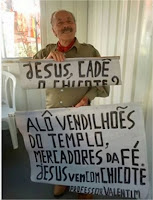 JESUS, CADÊ
O CHICOTE?
ALÔ VENDILHÕES
DO TEMPLO,
MERCADORES DA FÉ.
JESUS VEM COM CHICOTE
PROFESSOR VALENTIM